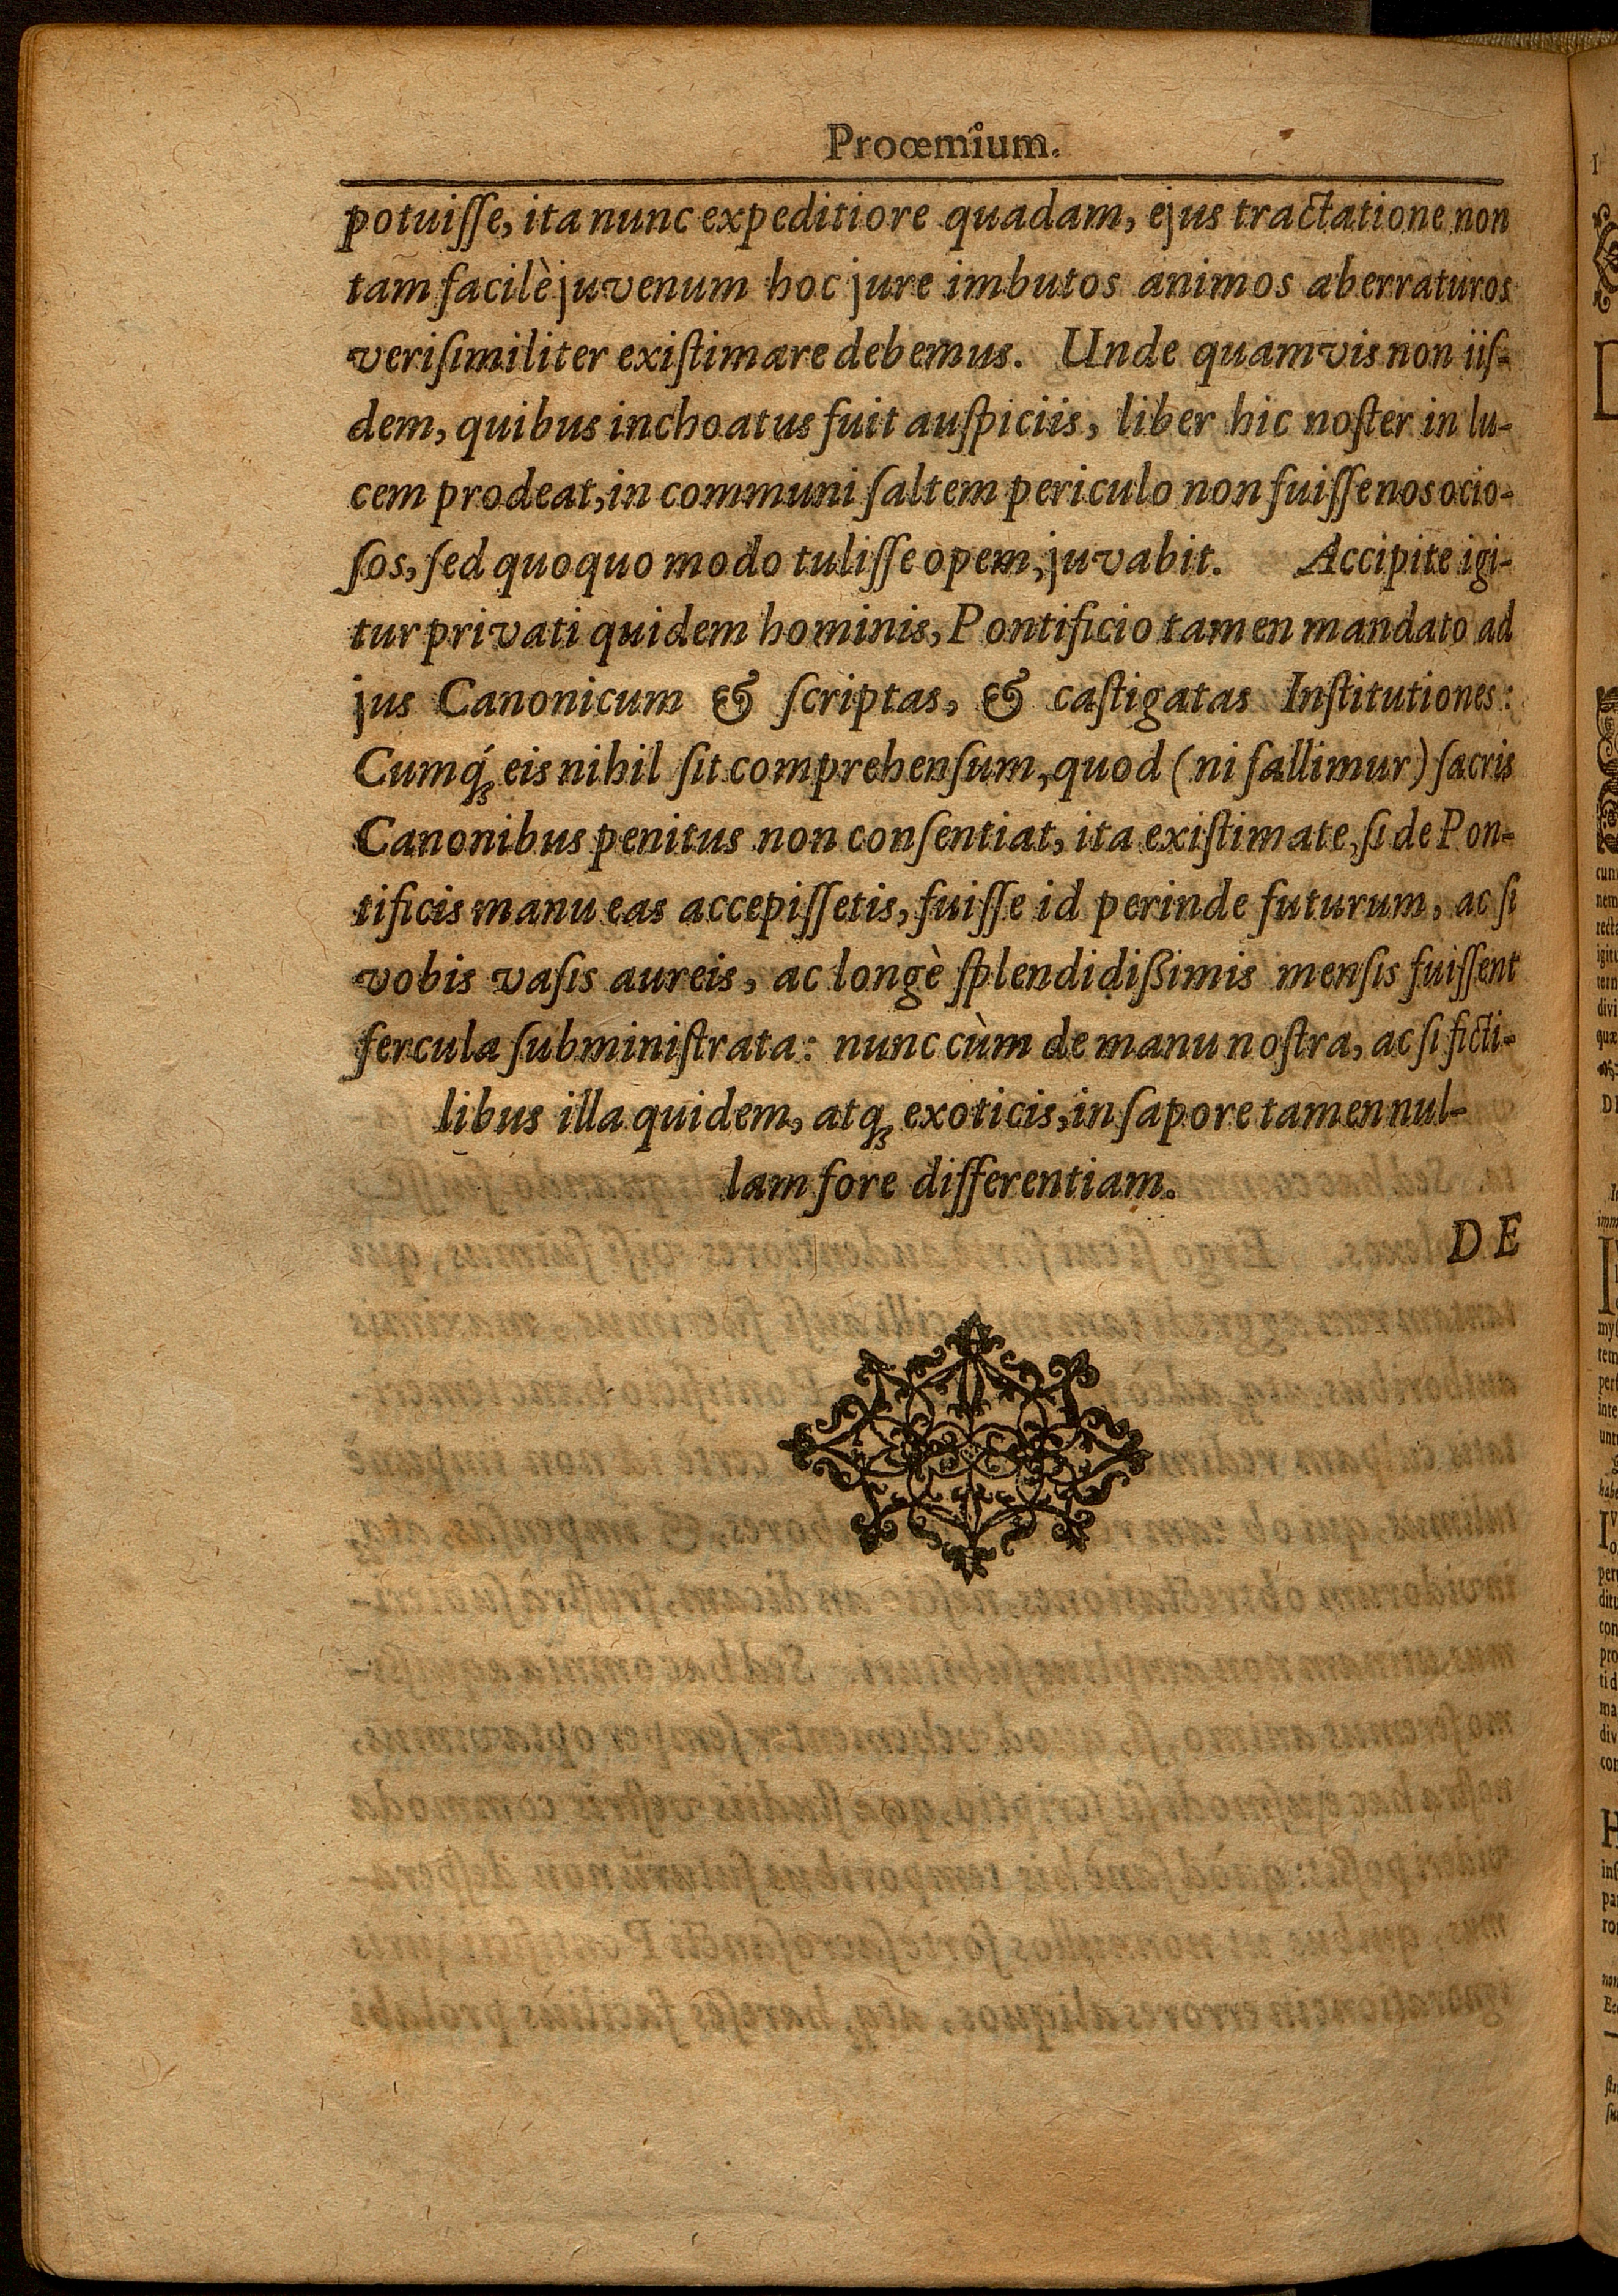 Proœmium.
potuiſſe, ita nunc expeditiore quadam, ejus tractatione non
tam facilè juvenum hoc jure imbutos animos aberraturos
veriſimiliter exiſtimare debemus. Unde quamvis non iiſ-
dem, quibus inchoatus fuit auſpiciis, liber hic noſter in lu-
cem prodeat, in communi ſaltem periculo non fuiſſe nos ocio-
ſos, ſed quoquo modo tuliſſe opem, juvabit. Accipite igi-
tur privati quidem hominis, Pontificio tamen mandato ad
jus Canonicum & ſcriptas, & caſtigatas Inſtitutiones:
Cumq́; eis nihil ſit comprehenſum, quod (ni fallimur) ſacris
Canonibus penitus non conſentiat, ita exiſtimate, ſi de Pon-
tificis manu eas accepiſſetis, fuiſſe id perinde futurum, ac ſi
vobis vaſis aureis, ac longè ſplendidißimis menſis fuiſſent
fercula ſubminiſtrata: nunc cùm de manu noſtra, ac ſi ficti-
libus illa quidem, atq; exoticis, in ſapore tamen nul-
lam fore differentiam.
DE